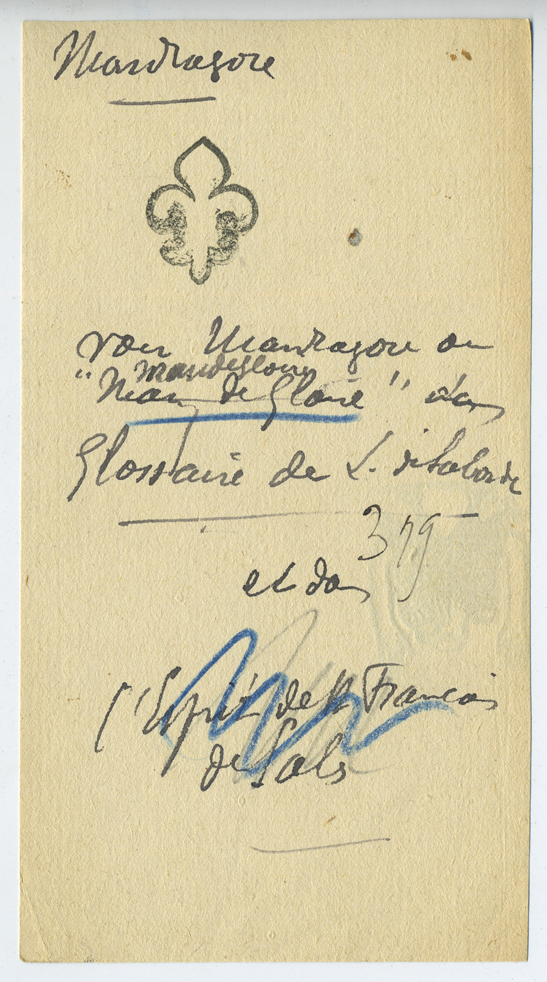 Mandragore
voir Mandragore ou
mandegloire
"Main de Gloire" dans
Glossaire de L. de Laborde
379
et dans
l'Esprit de St Francois
de Sales